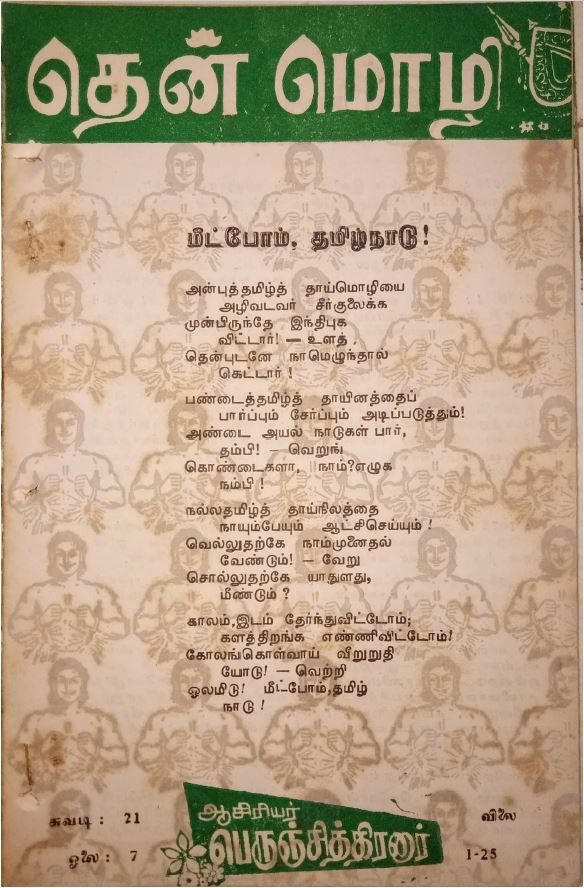 தென் மொழி
மீட்போம், தமிழ்நாடு!
அன்புத்தமிழ்த் தாய்மொழியை
அழிவடவர் சீர்குலைக்க
முன்பிருந்தே இந்திபுக
விட்டார்! — உளத்
தென்புடனே நாமெழுந்தால்
கெட்டார் !
பண்டைத்தமிழ்த் தாயினத்தைப்
பார்ப்பும் சேர்ப்பும் அடிப்படுத்தும்!
அண்டை அயல் நாடுகள் பார்,
தம்பி! — வெறுங்
கொண்டைகளா, நாம்?எழுக
நம்பி !
நல்லதமிழ்த் தாய்நிலத்தை
நாயும்பேயும் ஆட்சிசெய்யும் !
வெல்லுதற்கே நாம்முனைதல்
வேண்டும்! — வேறு
சொல்லுதற்கே யாதுளது,
மீண்டும் ?
காலம்,இடம் தேர்ந்துவிட்டோம்;
களத்திறங்க எண்ணிவிட்டோம்!
கோலங்கொள்வாய் வீறுறுதி
யோடு! — வெற்றி
ஓலமிடு! மீட்போம்,தமிழ்
நாடு !
சுவடி : 21
ஓலை : 7
ஆசிரியர்
பெருஞ்சித்திரனார்
விலை
1-25